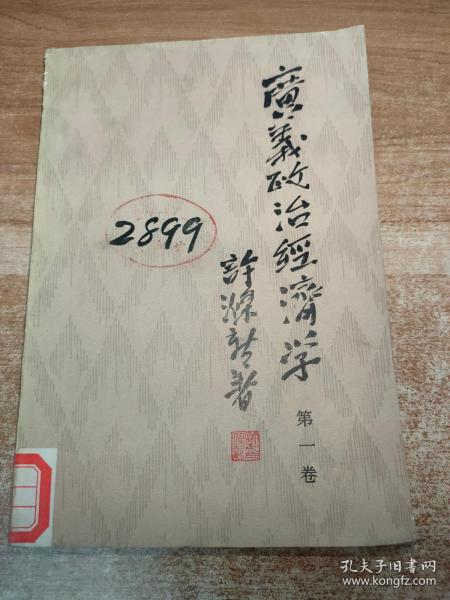 廣義政治經濟学
第一卷
許滌新著
2899
孔夫子旧书网
www.kongfz.com